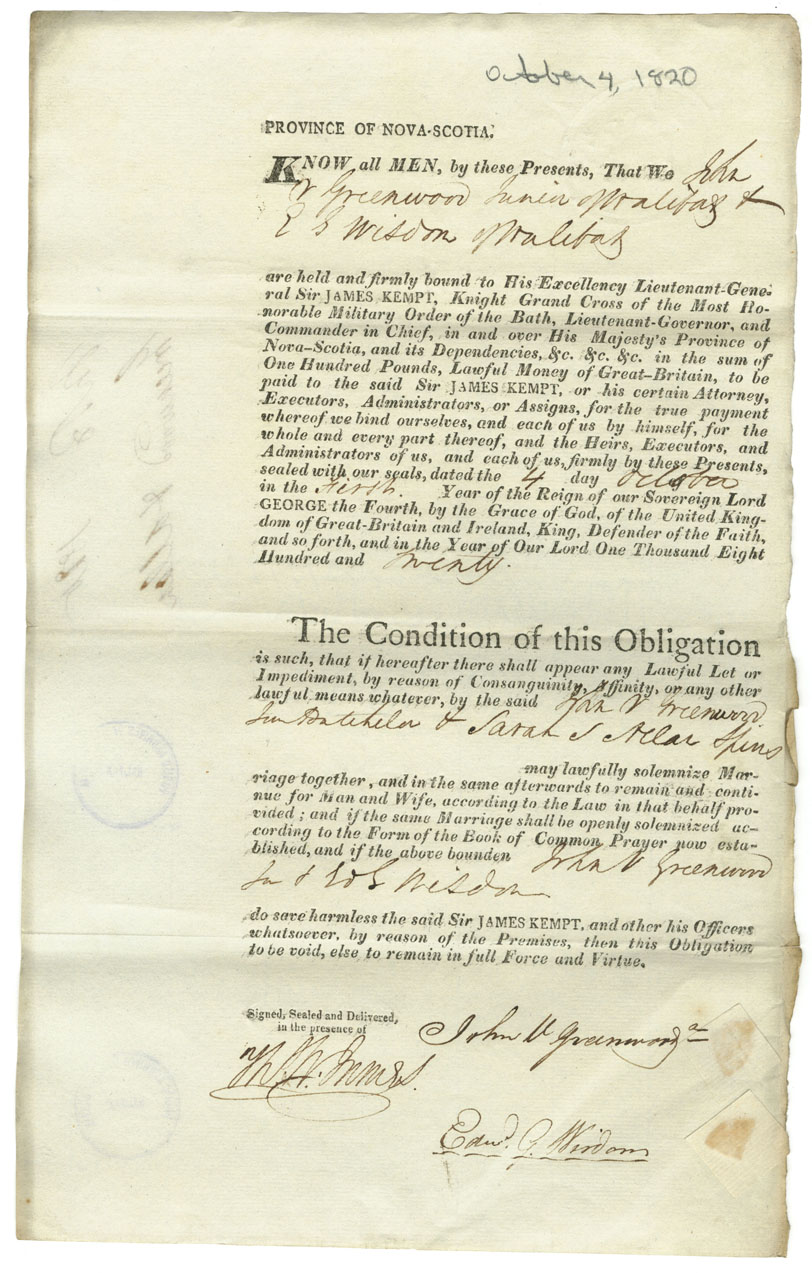 October 4, 1820
PROVINCE OF NOVA-SCOTIA.
KNOW all MEN, by these Presents, That We John
V Greenwood Junior of Halifax &
E G Wisdom of Halifax
are held and firmly bound to His Excellency Lieutenant-Gene-
ral Sir JAMES KEMPT, Knight Grand Cross of the Most Ho-
norable Military Order of the Bath, Lieutenant-Governor, and
Commander in Chief, in and over His Majesty's Province of
Nova-Scotia, and its Dependencies, &c. &c. &c. in the sum of
One Hundred Pounds, Lawful Money of Great-Britain, to be
paid to the said Sir JAMES KEMPT, or his certain Attorney,
Executors, Administrators, or Assigns, for the true payment
whereof we bind ourselves, and each of us by himself, for the
whole and every part thereof, and the Heirs, Executors, and
Administrators of us, and each of us, firmly by these Presents,
sealed with our seals, dated the 4 day October
in the First. Year of the Reign of our Sovereign Lord
GEORGE the Fourth, by the Grace of God, of the United King-
dom of Great-Britain and Ireland, King, Defender of the Faith,
and so forth, and in the Year of Our Lord One Thousand Eight
Hundred and Twenty.
The Condition of this Obligation
is such, that if hereafter there shall appear any Lawful Let or
Impediment, by reason of Consanguinity, Affinity, or any other
lawful means whatever, by the said John V Greenwood
Jun Batchelor & Sarah S Allar Spins
may lawfully solemnize Mar-
riage together, and in the same afterwards to remain and conti-
nue for Man and Wife, according to the Law in that behalf pro-
vided; and if the same Marriage shall be openly solemnized ac-
cording to the Form of the Book of Common Prayer now esta-
blished, and if the above bounden John V Greenwood
Jun & Ed G Wisdom
do save harmless the said Sir JAMES KEMPT, and other his Officers
whatsoever, by reason of the Premises, then this Obligation
to be void, else to remain in full Force and Virtue.
Signed, Sealed and Delivered,
in the presence of
John V Greenwood
Edwd. G. Wisdom